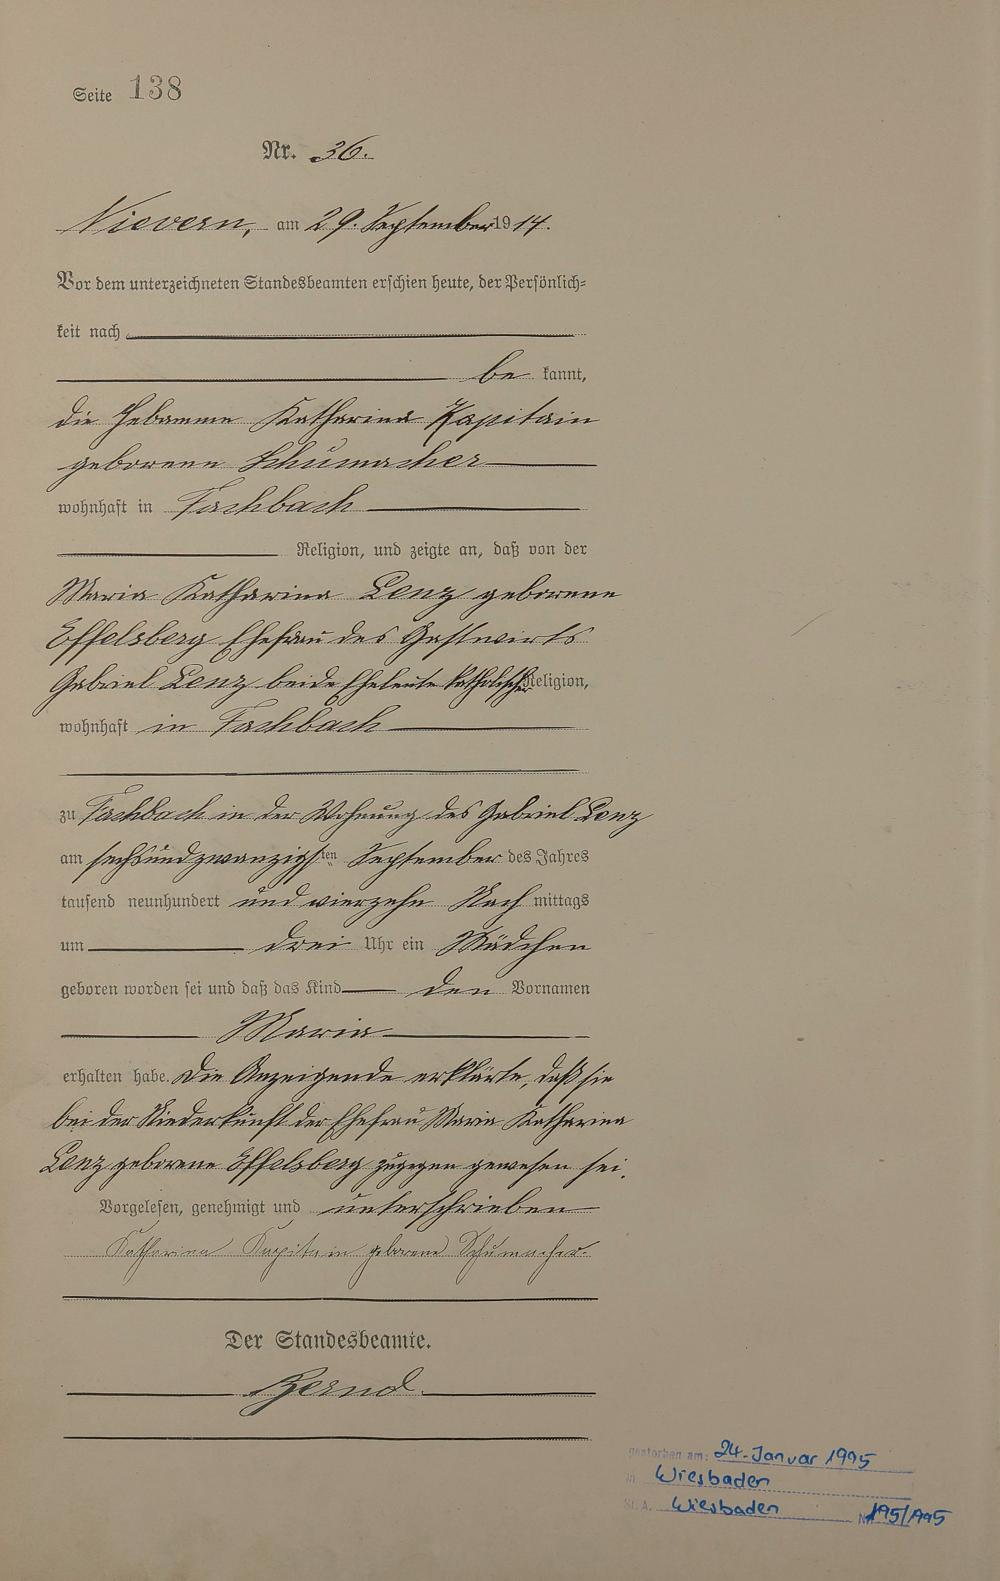 Seite 138
Nr. 36.
Nievern, am 29. September 1914.
Vor dem unterzeichneten Standesbeamten erschien heute, der Persönlich-
keit nach
be kannt,
die Hebamme Katharina Kapitain
geborene Schumacher
wohnhaft in Fachbach
Religion, und zeigte an, daß von der
Maria Katharina Lenz geborene
Effelsberg Ehefrau des Gastwirts
Gabriel Lenz beide Eheleute katholischer Religion,
wohnhaft in Fachbach
zu Fachbach in der Wohnung des Gabriel Lenz
am sechsundzwanzigsten September des Jahres
tausend neunhundert und vierzehn Nach mittags
um drei Uhr ein Mädchen
geboren worden sei und daß das Kind den Vornamen
Maria
erhalten habe. Die Anzeigende erklärte, daß sie
bei der Niederkunft der Ehefrau Maria Katharina
Lenz geborene Effelsberg zugegen gewesen sei.
Vorgelesen, genehmigt und unterschrieben
Katharina Kapitain geborene Schumacher.
Der Standesbeamte.
Bernd.
gestorben am: 24. Januar 1995
in Wiesbaden
St. A. Wiesbaden Nr. 195/1995